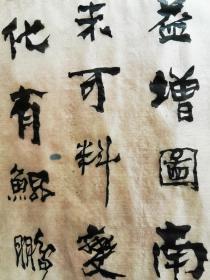 益增圖南
未可料變
化有鯤鵬